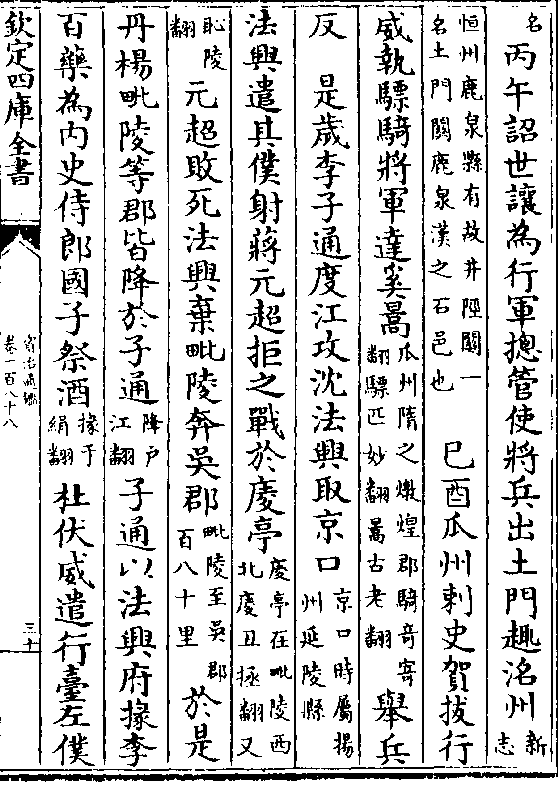 名 丙午詔世讓為行軍摠管使將兵出土門趣洺州 新志
恒州鹿泉縣有故井陘關一名土門關鹿泉漢之石邑也 巳酉瓜州刺史賀拔行
威執驃騎將軍達奚暠 瓜州隋之燉煌郡騎奇寄翻驃匹妙翻暠古老翻 舉兵
反 是歲李子通度江攻沈法興取京口 京口時屬揚州延陵縣
法興遣其僕射蔣元超拒之戰於慶亭 慶亭在毗陵西北慶丑拯翻又
恥陵翻 元超敗死法興棄毗陵奔吳郡 毗陵至吳郡百八十里 於是
丹楊毗陵等郡皆降於子通 降户江翻 子通以法興府掾李
百藥為内史侍郎國子祭酒 掾于絹翻 杜伏威遣行臺左僕
欽定四庫全書
資治通鑑
卷一百八十八
三十